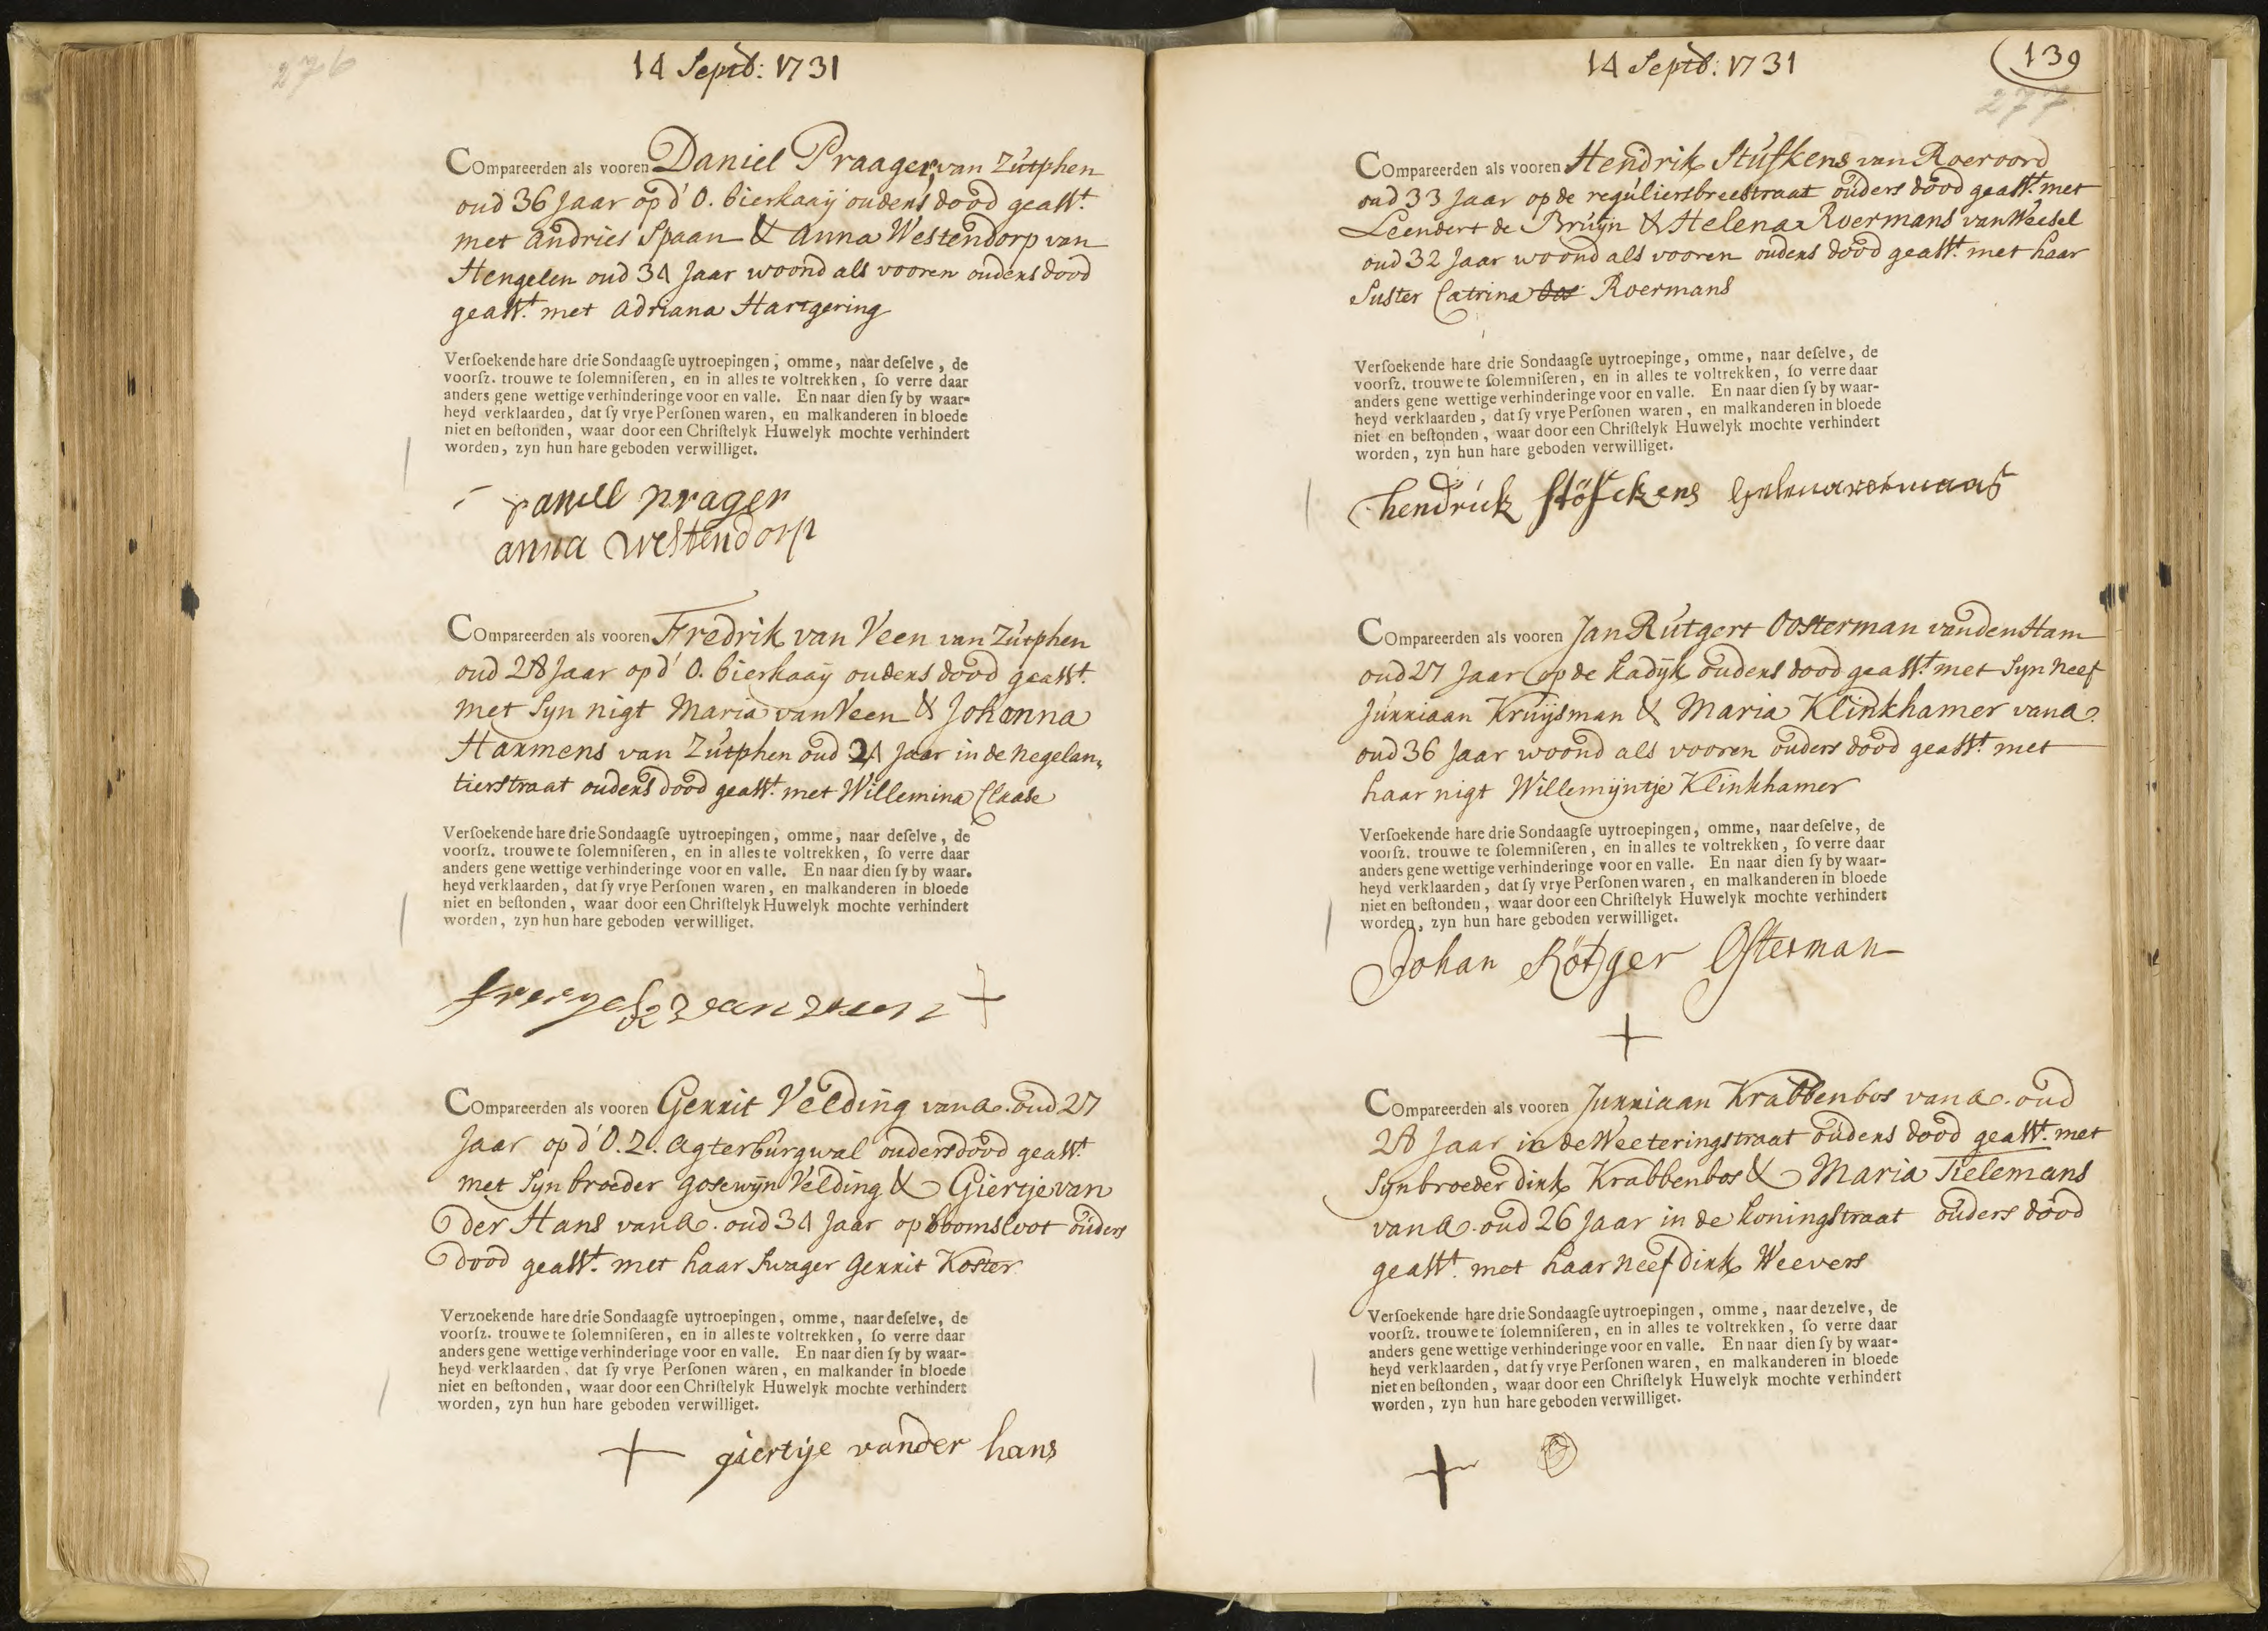 276
14 Septb: 1731
COmpareerden als vooren Daniel Praager, van Zutphen
oud 36 Jaar op d' O. bierkaaij ouders dood geasst.
met andries Spaan & Anna Westendorp van
Hengelen oud 34 Jaar woond als vooren ouders dood
geasst. met Adriana Hartgering
Verſoekende hare drie Sondaagſe uytroepingen, omme, naar deſelve, de
voorſz. trouwe te ſolemniſeren, en in alles te voltrekken, ſo verre daar
anders gene wettige verhinderinge voor en valle. En naar dien ſy by waar-
heyd verklaarden, dat ſy vrye Perſonen waren, en malkanderen in bloede
niet en beſtonden, waar door een Chriſtelyk Huwelyk mochte verhindert
worden, zyn hun hare geboden verwilliget.
daniell prager
anna westendorp
COmpareerden als vooren Fredrik van Veen van Zutphen
oud 28 Jaar op d' O. bierkaaij ouders dood geasst.
met Syn nigt Maria van Veen & Johanna
Harmens van Zutphen oud 24 Jaar in de negelan„
tierstraat ouders dood geasst. met Willemina Claase
Verſoekende hare drie Sondaagſe uytroepingen, omme, naar deſelve, de
voorſz. trouwe te ſolemniſeren, en in alles te voltrekken, ſo verre daar
anders gene wettige verhinderinge voor en valle. En naar dien ſy by waar-
heyd verklaarden, dat ſy vrye Perſonen waren, en malkanderen in bloede
niet en beſtonden, waar door een Chriſtelyk Huwelyk mochte verhindert
worden, zyn hun hare geboden verwilliget.
van veen +
COmpareerden als vooren Gerrit Velding van A. oud 27
Jaar op d' O. Z. Agterburgwal ouders dood geasst.
met Syn broeder Gosewyn Velding & Giertje van
der Hans van A. oud 34 Jaar op boomsloot ouders
dood geasst. met haar Swager Gerrit Koster
Verzoekende hare drie Sondaagſe uytroepingen, omme, naar deſelve, de
voorſz. trouwe te ſolemniſeren, en in alles te voltrekken, ſo verre daar
anders gene wettige verhinderinge voor en valle. En naar dien ſy by waar-
heyd verklaarden, dat ſy vrye Perſonen waren, en malkander in bloede
niet en beſtonden, waar door een Chriſtelyk Huwelyk mochte verhindert
worden, zyn hun hare geboden verwilliget.
+ giertije vander hans
14 Septb: 1731
139
277
COmpareerden als vooren Hendrik Stufkens van Roeroord
oud 33 Jaar op de reguliersbreestraat ouders dood geasst. met
Leendert de Bruyn & Helena Roermans van Weesel
oud 32 Jaar woond als vooren ouders dood geasst. met haar
Suster Catrina Roermans
Verſoekende hare drie Sondaagſe uytroepinge, omme, naar deſelve, de
voorſz. trouwe te ſolemniſeren, en in alles te voltrekken, ſo verre daar
anders gene wettige verhinderinge voor en valle. En naar dien ſy by waar-
heyd verklaarden, dat ſy vrye Perſonen waren, en malkanderen in bloede
niet en beſtonden, waar door een Chriſtelyk Huwelyk mochte verhindert
worden, zyn hun hare geboden verwilliget.
hendrick stöfckens
COmpareerden als vooren Jan Rutgert Oosterman van den Ham
oud 27 Jaar op de kadyk ouders dood geasst. met Syn neef
Jurriaan Kruijsman & Maria Klinkhamer van A.
oud 36 Jaar woond als vooren ouders dood geasst. met
haar nigt Willemijntje Klinkhamer
Verſoekende hare drie Sondaagſe uytroepingen, omme, naar deſelve, de
voorſz. trouwe te ſolemniſeren, en in alles te voltrekken, ſo verre daar
anders gene wettige verhinderinge voor en valle. En naar dien ſy by waar-
heyd verklaarden, dat ſy vrye Perſonen waren, en malkanderen in bloede
niet en beſtonden, waar door een Chriſtelyk Huwelyk mochte verhindert
worden, zyn hun hare geboden verwilliget.
Johan Rötger Osterman
+
COmpareerden als vooren Jurriaan Krabbenbos van A. oud
28 Jaar in de Weeteringstraat ouders dood geasst. met
Syn broeder dirk Krabbenbos & Maria Tielemans
van A. oud 26 Jaar in de koningstraat ouders dood
geasst. met haar neef dirk Weevers
Verſoekende hare drie Sondaagſe uytroepingen, omme, naar dezelve, de
voorſz. trouwe te ſolemniſeren, en in alles te voltrekken, ſo verre daar
anders gene wettige verhinderinge voor en valle. En naar dien ſy by waar-
heyd verklaarden, dat ſy vrye Perſonen waren, en malkanderen in bloede
niet en beſtonden, waar door een Chriſtelyk Huwelyk mochte verhindert
worden, zyn hun hare geboden verwilliget.
+